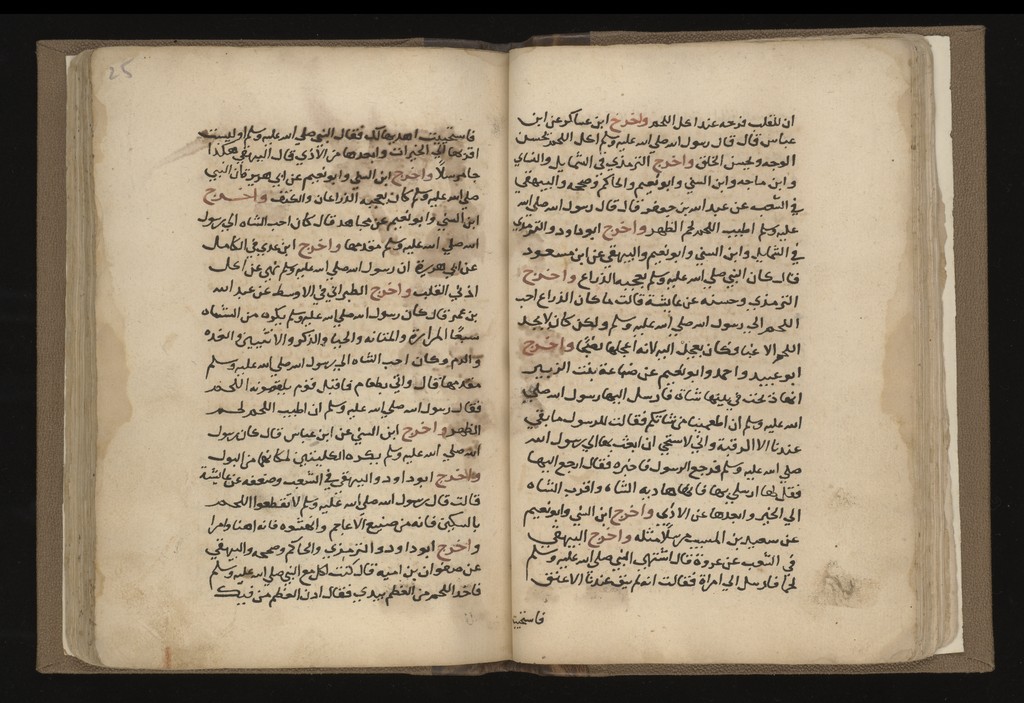 ان للقلب فرحه عند اكل اللحم واخرج ابن عساكر عن ابن
عباس قال قال رسول الله صلى الله عليه وسلم اكل اللحم يحسن
الوجه ويحسن الخلق واخرج الترمذي في الشمايل والنساي
وابن ماجه وابن السني وابو نعيم والحاكم وصححه والبيهقي
في الشعب عن عبد الله بن جعفر قال قال رسول الله صلى الله
عليه وسلم اطيب اللحم لحم الظهر واخرج ابو داود والترمذي
في الشمايل وابن السني وابو نعيم والبيهقي عن ابن مسعود
قال كان النبي صلى الله عليه وسلم يعجبه الذراع واخرج
الترمذي وحسنه عن عايشة قالت ما كان الذراع احب
اللحم الى رسول الله صلى الله عليه وسلم ولكن كان لا يجد
اللحم الا غبا وكان يعجل اليه لانه اعجلها نضجا واخرج
ابو عبيد واحمد وابو نعيم عن ضباعة بنت الزبير
انها ذبحت في بيتها شاة فارسل اليها رسول الله صلى
الله عليه وسلم ان اطعمينا من شاتكم فقالت للرسول ما بقي
عندنا الا الرقبة واني لاستحي ان ابعث بها الى رسول الله
صلى الله عليه وسلم فرجع الرسول فاخبره فقال ارجع اليها
فقل لها ارسلي بها فانها هادية الشاه واقرب الشاه
الى الخير وابعدها عن الاذى واخرج ابن السني وابو نعيم
عن سعيد بن المسيب مرسلا مثله واخرج البيهقي
في الشعب عن عروة قال اشتهى النبي صلى الله عليه وسلم
لحما فارسل الى امراة فقالت انه لم يبق عندنا الا عنق
فاستحييت
25
فاستحييت اهديها لك فقال النبي صلى الله عليه وسلم اوليست
اقربها الى الخيرات وابعدها من الاذى قال البيهقي هكذا
جا مرسلا واخرج ابن السني وابو نعيم عن ابي هريرة ان النبي
صلى الله عليه وسلم كان يعجبه الذراعان والكتف واخرج
ابن السني وابو نعيم عن مجاهد قال كان احب الشاه الى رسول
الله صلى الله عليه وسلم مقدمها واخرج ابن عدي في الكامل
عن ابي هريرة ان رسول الله صلى الله عليه وسلم نهى عن اكل
اذني القلب واخرج الطبراني في الاوسط عن عبد الله
بن عمر قال كان رسول الله صلى الله عليه وسلم يكره من الشاه
سبعا المرارة والمثانه والحيا والذكر والانثيين والغده
والدم وكان احب الشاه الى رسول الله صلى الله عليه وسلم
مقدمها قال واتي بطعام فاقبل قوم يلقمونه اللحم
فقال رسول الله صلى الله عليه وسلم ان اطيب اللحم لحم
الظهر واخرج ابن السني عن ابن عباس قال كان رسول
الله صلى الله عليه وسلم يكره الكليتين لمكانهما من البول
واخرج ابو داود والبيهقي في الشعب وضعفه عن عايشة
قالت قال رسول الله صلى الله عليه وسلم لا تقطعوا اللحم
بالسكين فانه من صنيع الاعاجم وانهشوه فانه اهنا وامرا
واخرج ابو داود والترمذي والحاكم وصححه والبيهقي
عن صفوان بن اميه قال كنت اكل مع النبي صلى الله عليه وسلم
فاخذ اللحم من العظم بيدي فقال ادن العظم من فيك